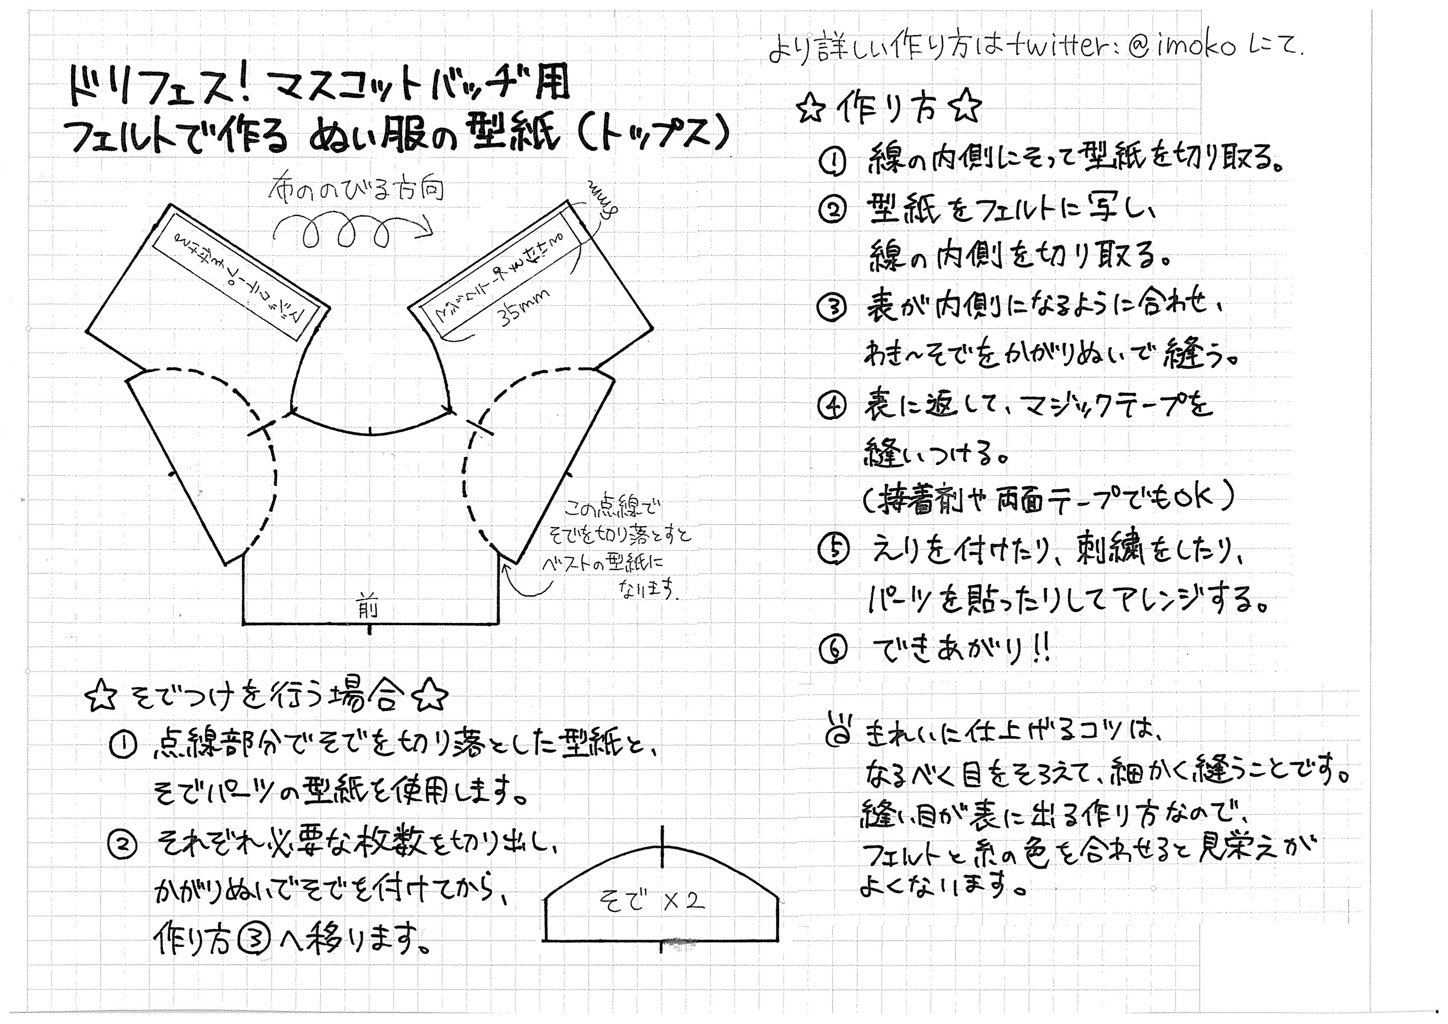 より詳しい作り方はtwitter:@imokoにて.
ドリフェス!マスコットバッヂ用
フェルトで作る ぬい服の型紙(トップス)
布ののびる方向
マジックテープを付ける
マジックテープを付ける
8mm
35mm
この点線で
そでを切り落とすと
ベストの型紙に
なります.
前
☆そでつけを行う場合☆
① 点線部分でそでを切り落とした型紙と、
そでパーツの型紙を使用します。
② それぞれ必要な枚数を切り出し、
かがりぬいでそでを付けてから、
作り方③へ移ります。
そで×2
☆作り方☆
① 線の内側にそって型紙を切り取る。
② 型紙をフェルトに写し、
線の内側を切り取る。
③ 表が内側になるように合わせ、
わき〜そでをかがりぬいで縫う。
④ 表に返して、マジックテープを
縫いつける。
(接着剤や両面テープでもOK)
⑤ えりを付けたり、刺繍をしたり、
パーツを貼ったりしてアレンジする。
⑥ できあがり!!
きれいに仕上げるコツは、
なるべく目をそろえて、細かく縫うことです。
縫い目が表に出る作り方なので、
フェルトと糸の色を合わせると見栄えが
よくなります。